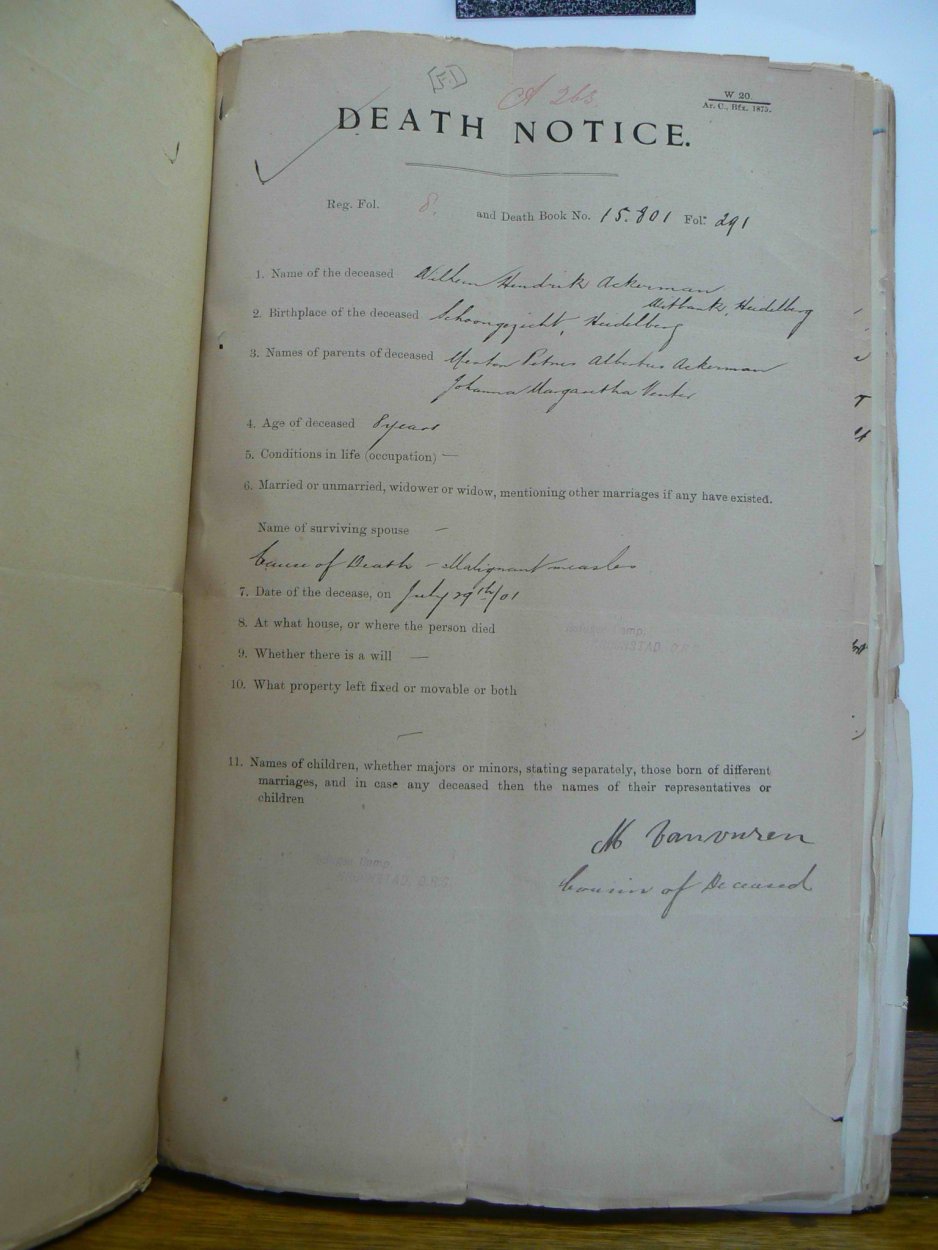 [F.1]
A 263.
W 20.
Ar. C., Bfx. 1875.
DEATH NOTICE.
Reg. Fol. 8. and Death Book No. 15.801 Fol: 291
1. Name of the deceased Wilhem Hendrik Ackerman
Witbank, Heidelberg
2. Birthplace of the deceased Schoongezicht, Heidelberg
3. Names of parents of deceased Petrus Albertus Ackerman
Johanna Margaretha Venter
4. Age of deceased 8 years
5. Conditions in life (occupation) —
6. Married or unmarried, widower or widow, mentioning other marriages if any have existed.
Name of surviving spouse —
Cause of Death — Malignant measles
7. Date of the decease, on July 29th/01
8. At what house, or where the person died Refugee Camp,
9. Whether there is a will —
10. What property left fixed or movable or both
—
11. Names of children, whether majors or minors, stating separately, those born of different
marriages, and in case any deceased then the names of their representatives or
children
M Vanvuren
Cousin of Deceased
Refugee Camp,
O.R.C.